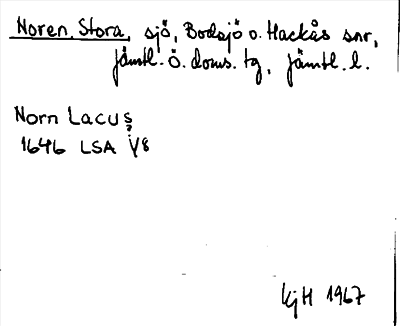 Noren, Stora, sjö, Bodsjö o. Hackås snr,
Jämtl. Ö. doms. tg, Jämtl. l.
Norn Lacus
1646 LSA Y8
KjH 1967